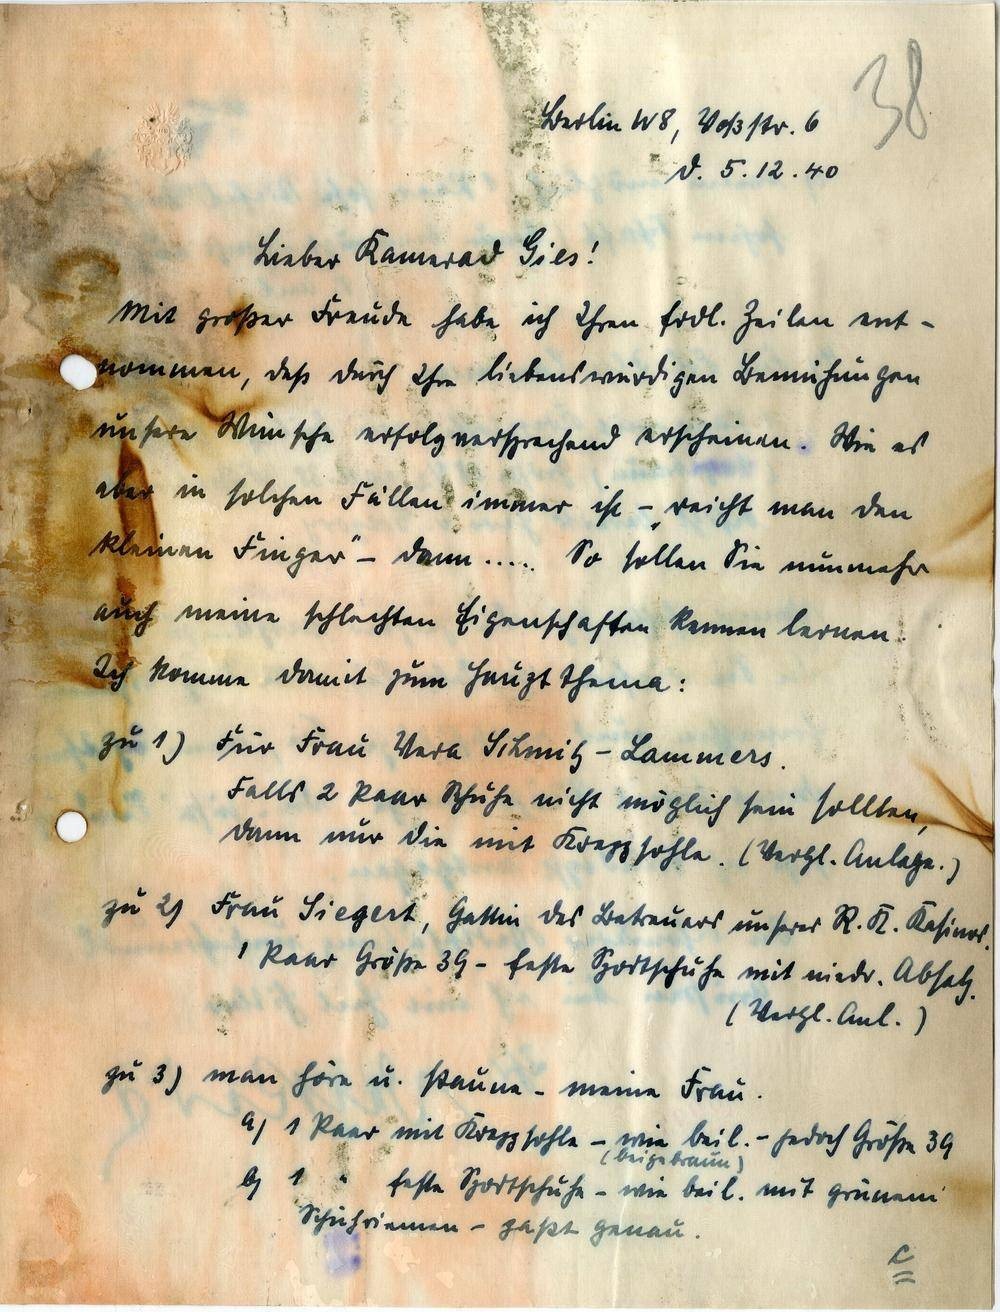 38
Berlin W8, Voßstr. 6
d. 5.12.40
Lieber Kamerad Gies!
Mit großer Freude habe ich Ihren frdl. Zeilen ent-
nommen, daß durch Ihre liebenswürdigen Bemühungen
unsere Wünsche erfolgversprechend erscheinen. Wie es
aber in solchen Fällen immer ist – „reicht man den
kleinen Finger" – dann ..... So sollen Sie nunmehr
auch meine schlechten Eigenschaften kennen lernen.
Ich komme damit zum Hauptthema:
zu 1) Für Frau Vera Schmitz-Lammers.
Falls 2 Paar Schuhe nicht möglich sein sollten,
dann nur die mit Kreppsohle. (Vergl. Anlage.)
zu 2) Frau Siegert, Gattin des Betreuers unseres R. K. Kasinos.
1 Paar Größe 39 – feste Sportschuhe mit niedr. Absatz.
(Vergl. Anl.)
zu 3) man höre u. staune – meine Frau.
a) 1 Paar mit Kreppsohle – wie beil. – jedoch Größe 39
(beigebraun)
b) 1 " feste Sportschuhe – wie beil. mit grünem
Schuhriemen – paßt genau.